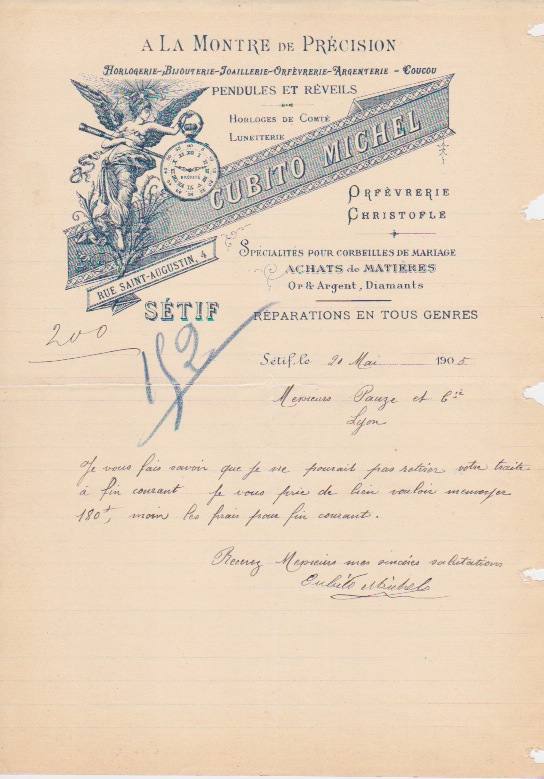 A LA MONTRE DE PRÉCISION
HORLOGERIE-BIJOUTERIE-JOAILLERIE-ORFÈVRERIE-ARGENTERIE - COUCOU
PENDULES ET RÉVEILS
HORLOGES DE COMTÉ
LUNETTERIE
CUBITO MICHEL
ORFÈVRERIE
CHRISTOFLE
SPÉCIALITÉS POUR CORBEILLES DE MARIAGE
RUE SAINT-AUGUSTIN, 4
ACHATS de MATIÈRES
Or & Argent, Diamants
SÉTIF
RÉPARATIONS EN TOUS GENRES
200
Sétif, le 20 Mai 1905
Messieurs Pauze et Cie
Lyon
Je vous fais savoir que je ne pourait pas retirer votre traite
à fin courant je vous prie de bien vouloir menvoyer
180f, moin les frais pour fin courant.
Recevez Messieurs mes sincères salutations
Cubito Michel